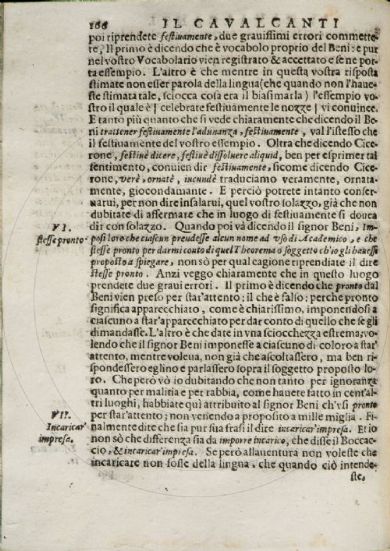 166 IL CAVALCANTI
poi riprendete festiuamente, due grauissimi errori commette-
te, Il primo è dicendo che è vocabolo proprio del Beni: e pur
nel vostro Vocabolario vien registrato & accettato e se ne por-
ta essempio. L'altro è che mentre in questa vostra risposta
stimate non esser parola della lingua (che quando non l'haue-
ste stimata tale, sciocca cosa era il biasimarla) l'essempio vo-
stro il quale è] celebrate festiuamente le nozze] vi conuince.
E tanto più quanto che si vede chiaramente che dicendo il Be-
ni trattener festiuamente l'adunanza, festiuamente, val l'istesso che
il festiuamente del vostro essempio. Oltra che dicendo Cice-
rone, festiuè dicere, festiuè dissoluere aliquid, ben per esprimer tal
sentimento, conuien dir festiuamente, sicome dicendo Cice-
rone, verè, ornatè, iucundè traduciamo veramente, ornata-
mente, giocondamente. E perciò potrete intanto conser-
uarui, per non dire insalarui, quel vostro solazzo, già che non
dubitate di affermare che in luogo di festiuamente si douea
dir con solazzo. Quando poi và dicendo il signor Beni, Im-
VI.
stesse pronto
pose loro che ciascun prendesse alcun nome ad vso di Academico, e che
stesse pronto per darmi conto di quel Theorema o soggetto ch'io gli hauessi
proposto a spiegare, non sò per qual cagione riprendiate il dire
stesse pronto. Anzi veggo chiaramente che in questo luogo
prendete due graui errori. Il primo è dicendo che pronto dal
Beni vien preso per star'attento; il che è falso: perche pronto
significa apparecchiato, come è chiarissimo, imponendosi a
ciascuno a star'apparecchiato per dar conto di quello che se gli
dimandasse. L'altro è che date in vna sciocchezza estrema, vo-
lendo che il signor Beni imponesse a ciascuno di coloro a star'
attento, mentre voleua, non già che ascoltassero, ma ben ri-
spondessero eglino e parlassero sopra il soggetto proposto lo-
ro. Che però vò io dubitando che non tanto per ignoranza
quanto per malitia e per rabbia, come hauete fatto in cent'al-
tri luoghi, habbiate quì attribuito al signor Beni ch'vsi pronto
VII.
Incaricar'
impresa.
per star'attento; non venendo a proposito a mille miglia. Fi-
nalmente dite che sia pur sua frasi il dire incaricar'impresa. Et io
non sò che differenza sia da imporre incarico, che disse il Boccac-
cio, & incaricar'impresa. Se però all'auentura non voleste che
incaricare non fosse della lingua, che quando ciò intende-
ste,